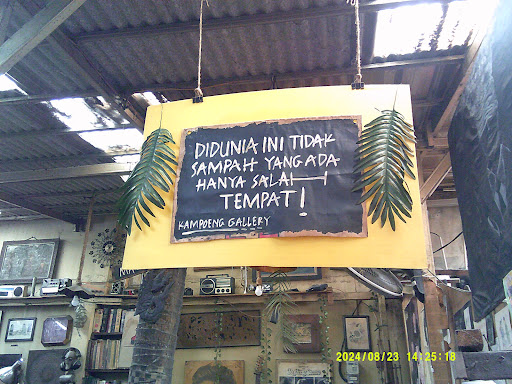 DIDUNIA INI TIDAK
SAMPAH YANG ADA
HANYA SALAH
TEMPAT!
KAMPOENG GALLERY
2024/08/23 14:25:18